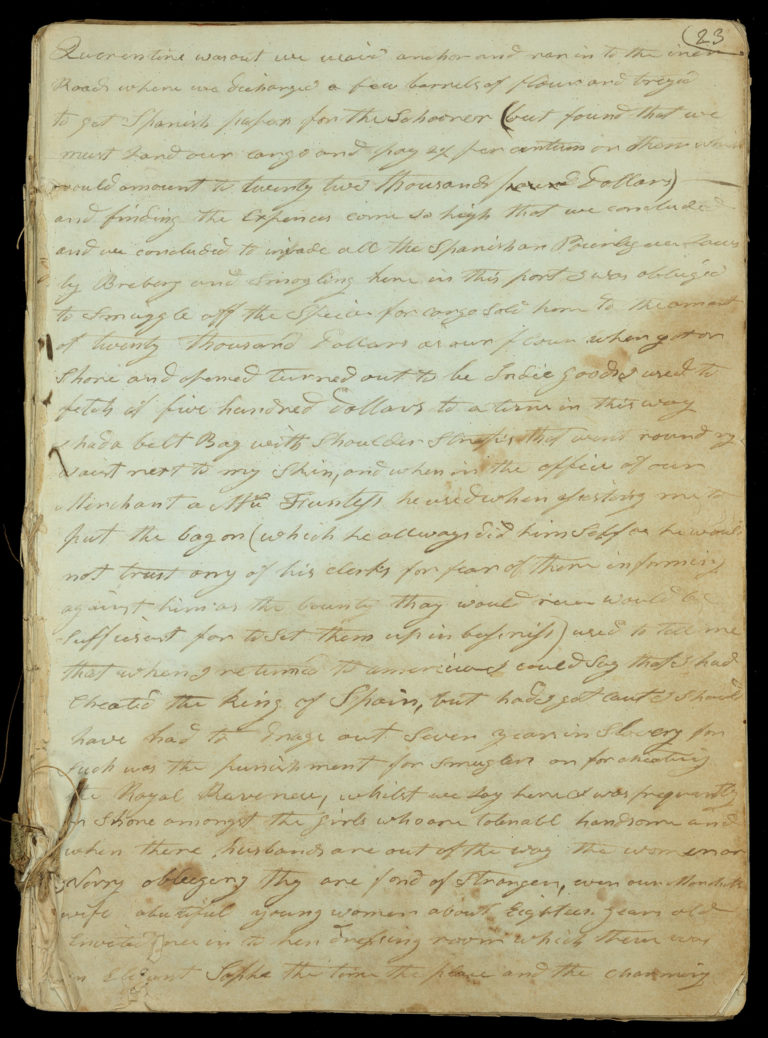 (23
Querentine was out we waid anchor and ran in to the iner
Roads where we discharged a few barrels of flour and tryed
to get Spanish papers for the Schooner (but found that we
must Land our cargo and pay per centum on them
would amount to twenty two thousands Dollars)
and finding the Expences come so high that we concluded
and we concluded to invade all the Spanish Laws
by Bribery and Smogling here in this port I was obliged
to Smuggle off the Specie for cargo Sold here to the amount
of twenty thousand Dollars as our flour when got on
Shore and opened turned out to be Indie goods I used to
fetch of five hundred dollars to a turn in this way
I had a belt Bag with Shoulder Straps that went round my
waist next to my Skin, and when in the office of our
Merchant a Mr. he used when asisting me to
put the bag on (which he allways did himself as he would
not trust any of his clerks for fear of there informing
against him as the bounty thay would would be
Suffisient for to Set them up in ) used to tell me
that when I returned to america I could Say that I had
Cheated the King of Spain, but had I got caut I Should
have had to out Seven years in Slavery for
Such was the punishment for Smuglers or for cheating
the Royal Revenew, whilst we Lay here I was frequently
on Shore amongst the girls who are tolenabl handsome and
when there husbands are out of the way the women are
obleeging thy are fond of Strangers, even our Merchants
wife a butiful young women about Eighteen years old
Envited me in to her dressing room which there was
an Elegant Sopha the time the place and the charming